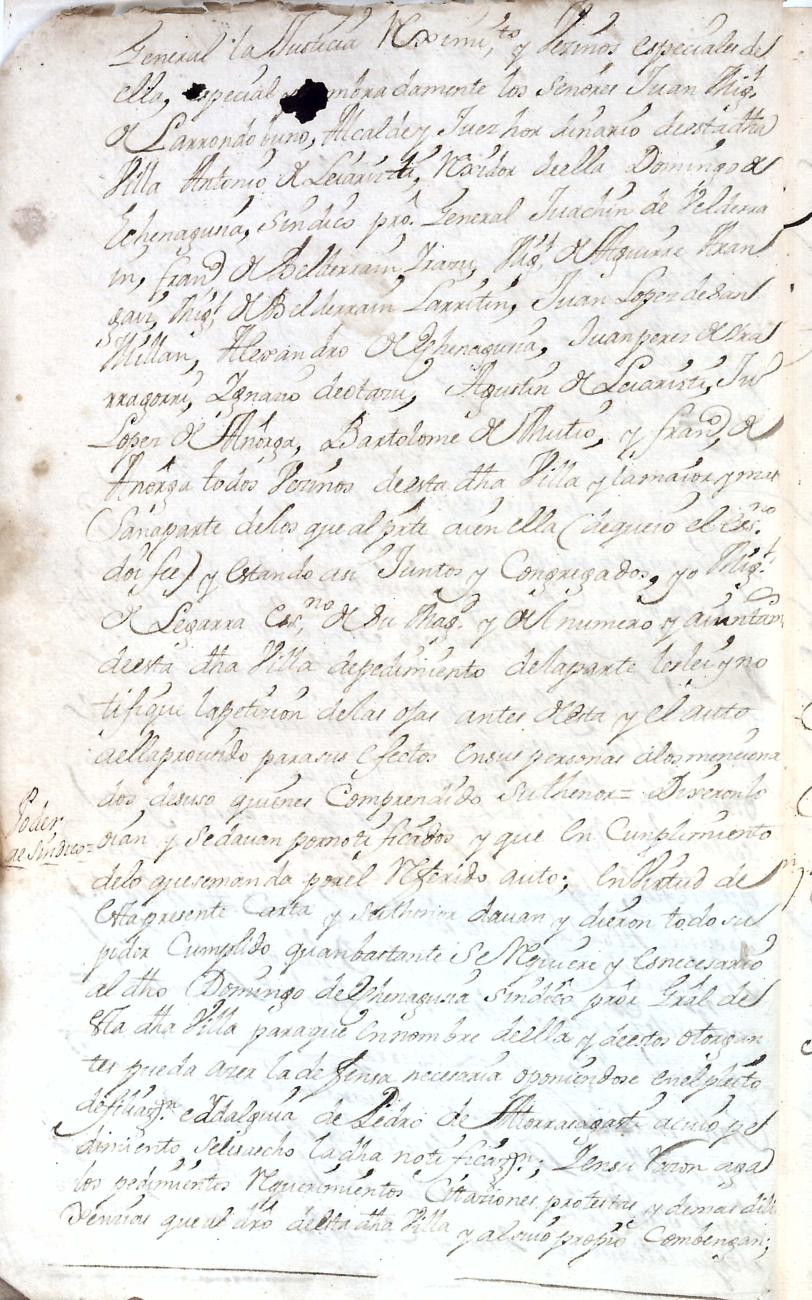 General la Justicia Reximi,to y Vezinos especiales de
ella, especial mbradamente los Señores Juan Migl
de Larrondobuno, Alcalde y Juez hordinario de esta dha
Villa Antonio de Leiaristi, Rexidor de ella Domingo de
Echenagusia, Sindico pror. General Juachin de Velderra
in, franco de Belderrain Irazu, Migl de Aguirre Fran
Migl de Belderrain Larritin, Juan Lopez de San
Millan, Alexandro de Echenagusia, Juan perez de Ira
rragorri, Ygnazio de otazu, Agustin de Leiaristi, Ju
Lopez de Añorga, Bartolome de Mutio, y franco de
Añorga todos Vezinos de esta dha Villa y la maior y mas
Sana parte de los que al prte auen ella (de que io el Esno
doi fee) y estando asi Juntos y Congregados, yo Migl
de Legarra Esc,no de Su Magd y del numero y aiuntam
de esta dha Villa de pedimiento de la parte les lei y no
tifique la peticion de las ojas antes de esta y el auto
a ella proueido para sus efectos en sus personas a los menciona
dos de suso quienes Comprendido su thenor= Dixeron lo
oian y se dauan por notificados y que en Cunplimiento
de lo que se manda por el Referido auto; en Virtud de
esta presente Carta y su thenor dauan y dieron todo su
poder Cumplido quan bastante Se Requiere y es necesario
al dho Domingo de Echenagusia Sindico pror Gral de
esta dha Villa para que en nombre de ella y de estos otorgan
tes pueda azer la defensa necesaria oponiendose en el pleito
de filiazon. e ydalguia de Pedro de Atorrasagasti a cuio pe
dimiento se les a echo la dha notificazon; Y en su Razon aga
los pedimientos Requerimientos Citaziones protestas y demas dili
xencias que al dro de esta dha Villa y al suio propio Combengan;
Poder
de Sindico=